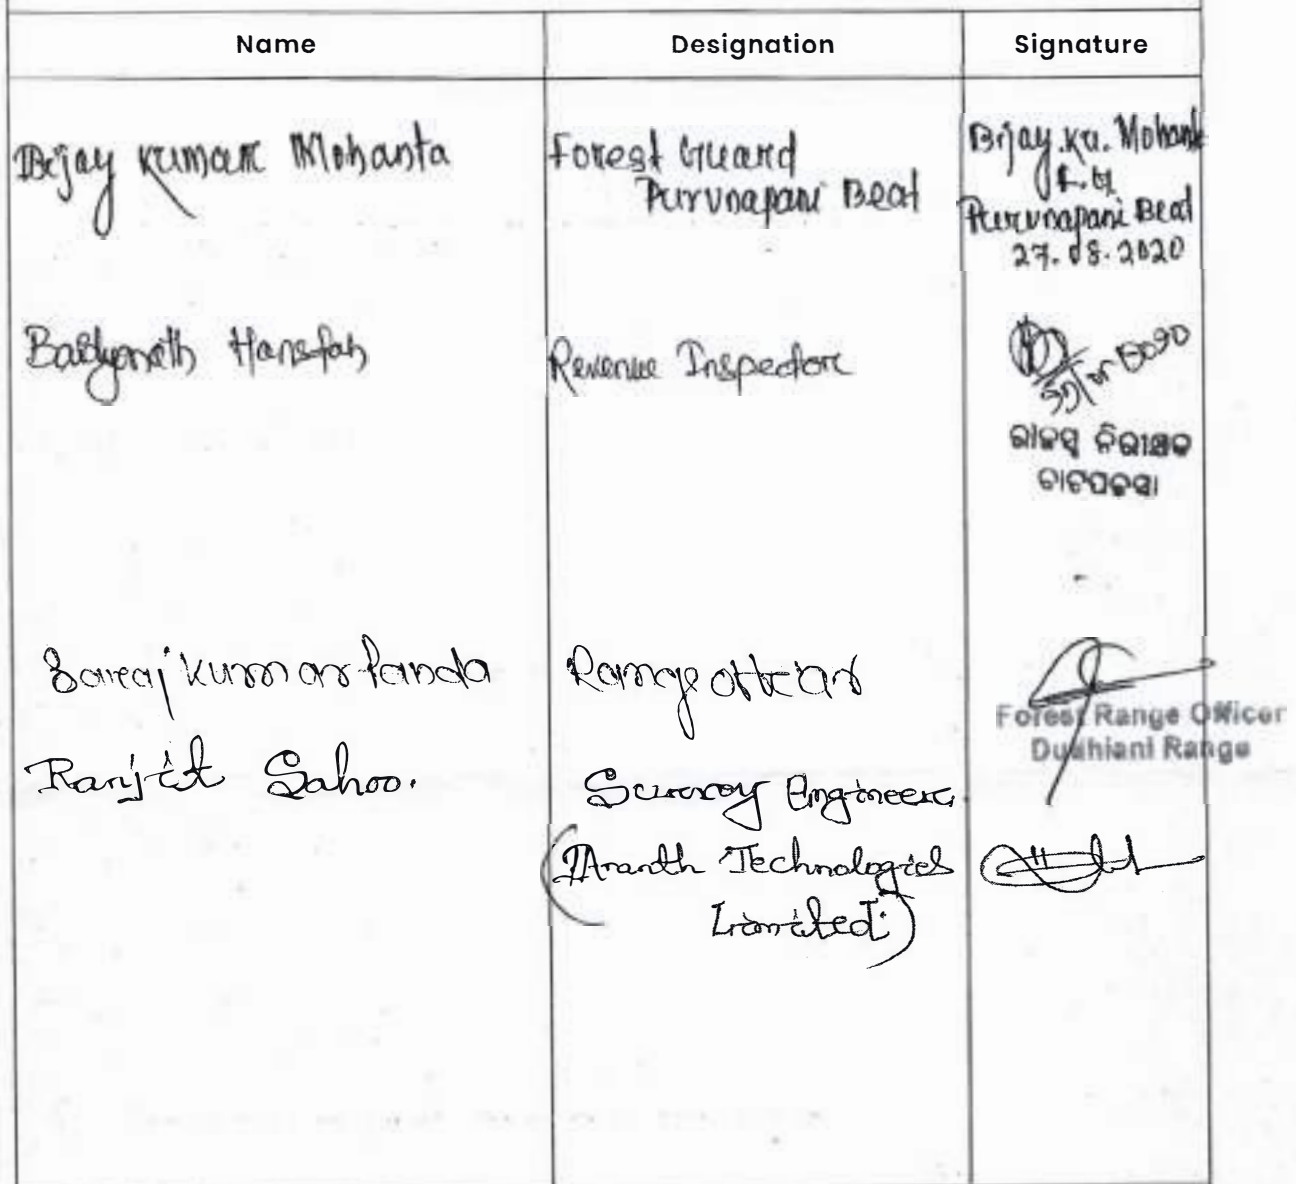 Name Designation Signature
Bijay Kumar Mohanta Forest Guard Bijay.Ku. Mohanta
Purunapani Beat F.G
Purunapani Beat
27.08.2020
Baidyanath Hansdah Revenue Inspector
ରାଜସ୍ୱ ନିରୀକ୍ଷକ
Saroj Kumar Panda Range officer
Forest Range Officer
Dudhiani Range
Ranjit Sahoo. Survey Engineer.
(Ananth Technologies
Limited.)